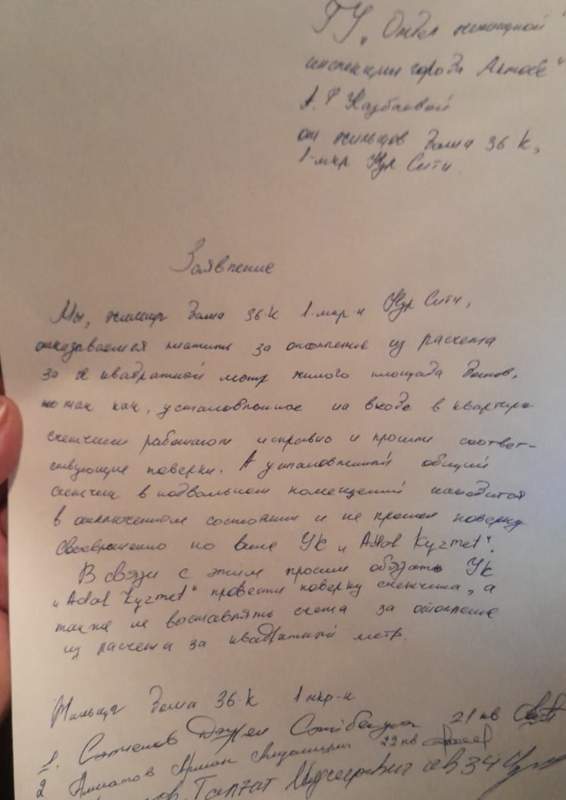 ГУ „Отдел жилищной
инспекции города Актобе"
А.Р
от жильцов дома 36 К,
1-мкр Нур Сити.
Заявление
Мы, жильцы дома 36-К 1-мкр-н Нур Сити,
отказываемся платить за отопление из расчета
за квадратной метр жилого площада домов,
так как, установленное на входе в квартиро
счетчики работают исправно и прошли соответ-
ствующие поверки. А установленный общий
счетчик в подвальном помещений находится
в отключенном состоянии и не прошел поверку
своевременно по вине УК „Adal Kyzmet".
В связи с этим просим обязать УК
„Adal Kyzmet" провести поверку счетчика, а
также не выставлять счета за отопление
из расчета за квадратный метр.
Жильцы дома 36-К 1 мкр-н
1. 21 кв
2 Арман 22 кв
Талгат кв 34